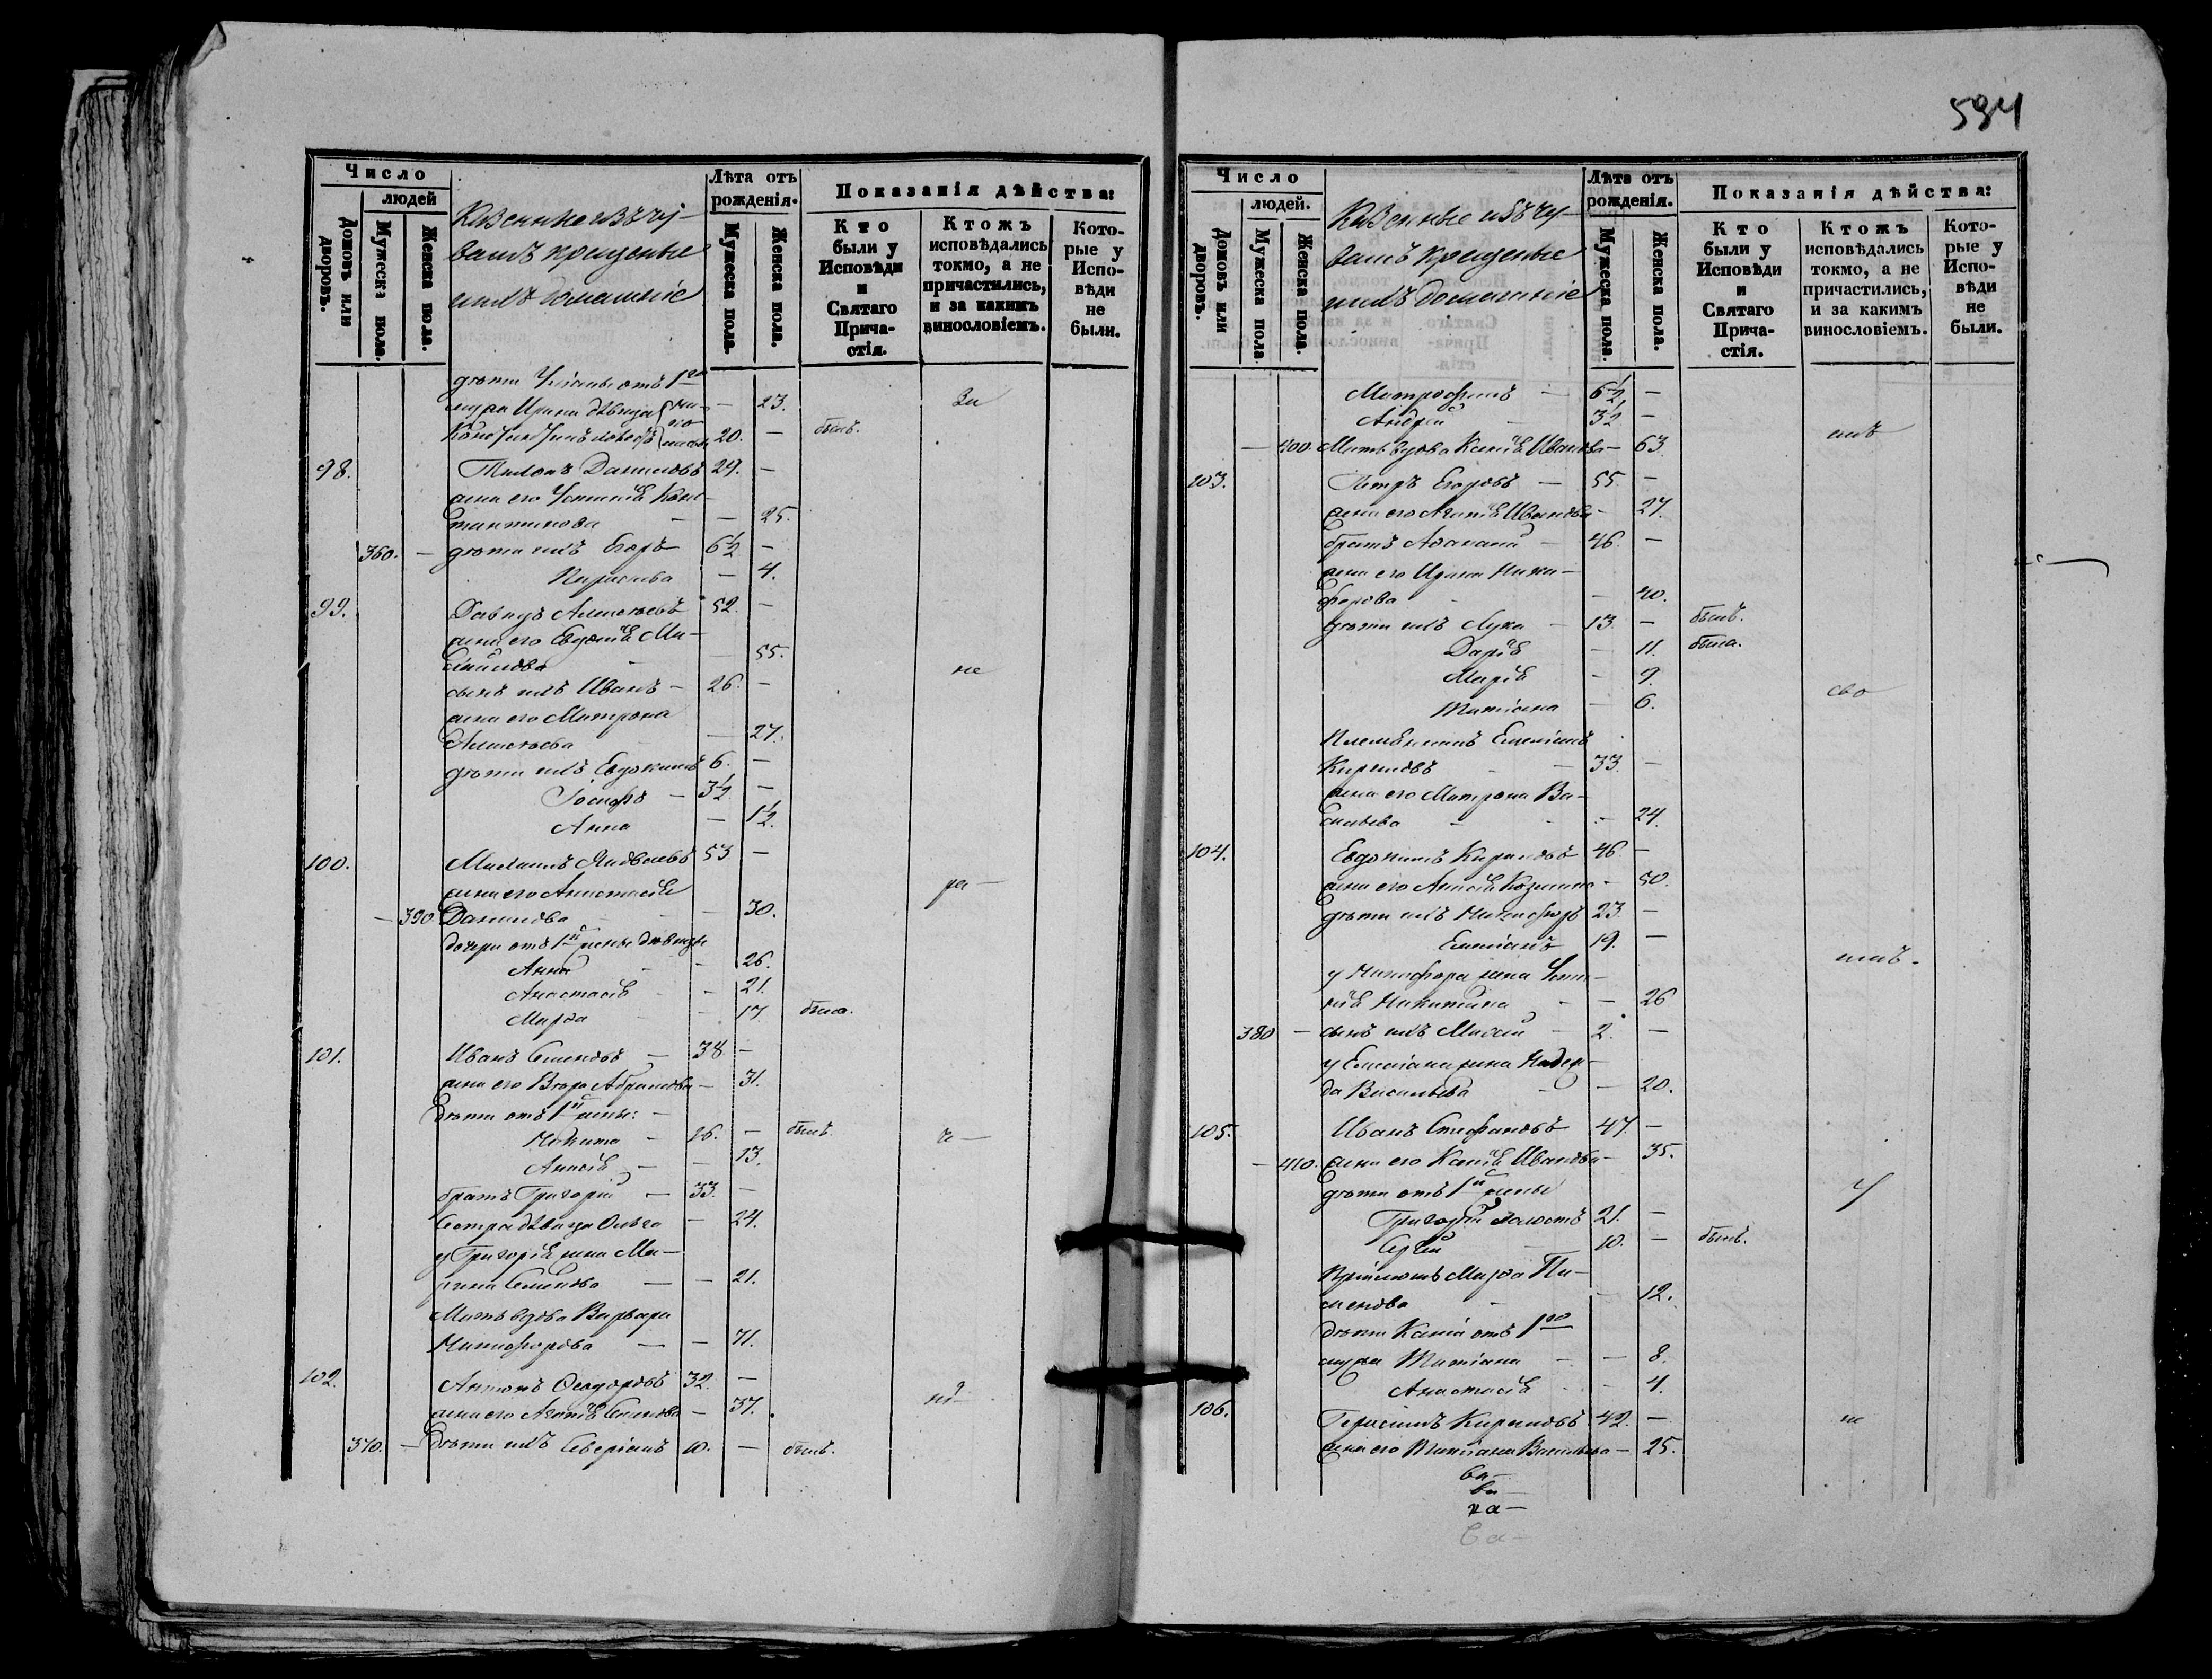 594
Число
людей
Домовъ или дворовъ.
Мужеска пола.
Женска пола.
Казенные изъ чу-
вашъ крещеные
и ихъ домашніе
Лѣта отъ рожденія.
Мужеска пола.
Женска пола.
Показанія дѣйства:
Кто были у Исповѣди и Святаго Прича-стія.
Ктожъ исповѣдались токмо, а не причастились, и за какимъ винословіемъ.
Кото-рые у Испо-вѣди не были.
дѣти отъ 1го
мужа Ирина дѣвица — 23. За
20. — былъ.
98. Даниловъ 24. —
жена его Устинія Конс-
тантинова — 25.
360. — дѣти ихъ Егоръ 6½ —
— 4.
99. Давидъ Алексѣевъ 52. —
жена его Евдокія Ми-
хайлова — 55.
не
сынъ ихъ Иванъ — 26. —
жена его Матрона
Алексѣева — 27.
дѣти ихъ Евдокимъ 6. —
Іосифъ — 3½ —
Анна — 1½.
100. Яковлевъ 53 —
жена его Анастасія
ра —
— 390 Данилова — 30.
дочери отъ 1й жены дѣвицы
Анна — 26.
Анастасія — 21.
Марѳа — 17 была.
101. Иванъ Семеновъ — 38 —
жена его Абрамова — 31.
дѣти отъ 1й жены: —
Никита — 16. — былъ.
Анисія — 13.
братъ Григорій — 33. —
Сестра дѣвица Ольга — 24.
у Григорія жена Ма-
рина Семенова — 21.
Мать вдова Варвара
Никифорова — 71.
102. Антонъ Ѳедоровъ 32. —
жена его Агаѳія Семенова — 37.
370. — дѣти ихъ Северіанъ 10. — былъ.
Число
людей.
Домовъ или дворовъ.
Мужеска пола.
Женска пола.
Казенные изъ чу-
вашъ крещеные
и ихъ домашніе
Лѣта отъ рожденія.
Мужеска пола.
Женска пола.
Показанія дѣйства:
Кто были у Исповѣди и Святаго Прича-стія.
Ктожъ исповѣдались токмо, а не причастились, и за какимъ винословіемъ.
Кото-рые у Испо-вѣди не были.
Митрофанъ — 6½ —
Андрей 3½ —
— 400. Мать вдова Ксенія Иванова — 63.
103. Петръ Егоровъ — 55. —
жена его Иванова — 27.
братъ Аѳанасій — 46. —
жена его Ирина Ники-
форова — 40.
дѣти ихъ Лука — 13. — былъ.
Дарія — 11. была.
Марія — 9.
сво
Татіана — 6.
Племянникъ Емеліанъ
Кириловъ — 33. —
жена его Матрона Ва-
сильева — 24.
104. Евдокимъ Кириловъ 46. —
жена его Анисія Козьмина — 50.
дѣти ихъ Никифоръ 23. —
Емеліанъ 19. —
у Никифора жена Усти-
нія Никитина — 26
380 — сынъ ихъ 2. —
у Емеліана жена Надеж-
да Васильева — 20.
105. Иванъ Стефановъ 47. —
— 410. жена его Ксенія Иванова — 35.
дѣти отъ 1й жены
Григорій холостъ 21. —
Сергій 10. — былъ.
Пріемышъ Марѳа Пи-
менова — 12.
дѣти Ксеніи отъ 1го
мужа Татіана — 8.
Анастасія — 4.
106. Герасимъ Кириловъ 42. —
жена его Татіана Васильева — 25.